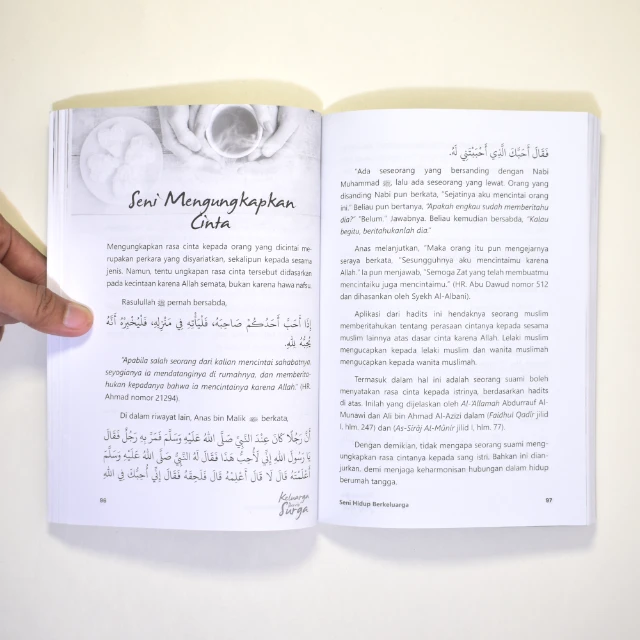 Seni Mengungkapkan
Cinta
Mengungkapkan rasa cinta kepada orang yang dicintai me-
rupakan perkara yang disyariatkan, sekalipun kepada sesama
jenis. Namun, tentu ungkapan rasa cinta tersebut didasarkan
pada kecintaan karena Allah semata, bukan karena hawa nafsu.
Rasulullah ﷺ pernah bersabda,
إِذَا أَحَبَّ أَحَدُكُمْ صَاحِبَهُ، فَلْيَأْتِهِ فِي مَنْزِلِهِ، فَلْيُخْبِرْهُ أَنَّهُ
يُحِبُّهُ لِلَّهِ.
"Apabila salah seorang dari kalian mencintai sahabatnya,
seyogianya ia mendatanginya di rumahnya, dan memberita-
hukan kepadanya bahwa ia mencintainya karena Allah." (HR.
Ahmad nomor 21294).
Di dalam riwayat lain, Anas bin Malik berkata,
أَنَّ رَجُلًا كَانَ عِنْدَ النَّبِيِّ صَلَّى اللهُ عَلَيْهِ وَسَلَّمَ فَمَرَّ بِهِ رَجُلٌ فَقَالَ
يَا رَسُولَ اللهِ إِنِّي لَأُحِبُّ هَذَا فَقَالَ لَهُ النَّبِيُّ صَلَّى اللهُ عَلَيْهِ وَسَلَّمَ
أَعْلَمْتَهُ قَالَ لَا قَالَ أَعْلِمْهُ قَالَ فَلَحِقَهُ فَقَالَ إِنِّي أُحِبُّكَ فِي اللهِ
86
Keluarga
Surga
فَقَالَ أَحَبَّكَ الَّذِي أَحْبَبْتَنِي لَهُ.
"Ada seseorang yang bersanding dengan Nabi
Muhammad ﷺ, lalu ada seseorang yang lewat. Orang yang
disanding Nabi pun berkata, "Sejatinya aku mencintai orang
ini." Beliau pun bertanya, "Apakah engkau sudah memberitahu
dia?" "Belum." Jawabnya. Beliau kemudian bersabda, "Kalau
begitu, beritahukanlah dia."
Anas melanjutkan, "Maka orang itu pun mengejarnya
seraya berkata, "Sesungguhnya aku mencintaimu karena
Allah." Ia pun menjawab, "Semoga Zat yang telah membuatmu
mencintaiku juga mencintaimu." (HR. Abu Dawud nomor 512
dan dihasankan oleh Syekh Al-Albani).
Aplikasi dari hadits ini hendaknya seorang muslim
memberitahukan tentang perasaan cintanya kepada sesama
muslim lainnya atas dasar cinta karena Allah. Lelaki muslim
mengucapkan kepada lelaki muslim dan wanita muslimah
mengucapkan kepada wanita muslimah.
Termasuk dalam hal ini adalah seorang suami boleh
menyatakan rasa cinta kepada istrinya, berdasarkan hadits
di atas. Inilah yang dijelaskan oleh Al-Allamah Abdurrauf Al-
Munawi dan Ali bin Ahmad Al-Azizi dalam (Faidhul Qadîr jilid
I, hlm. 247) dan (As-Sirâj Al-Mûnir jilid I, hlm. 77).
Dengan demikian, tidak mengapa seorang suami meng-
ungkapkan rasa cintanya kepada sang istri. Bahkan ini dian-
jurkan, demi menjaga keharmonisan hubungan dalam hidup
berumah tangga.
Seni Hidup Berkeluarga
97